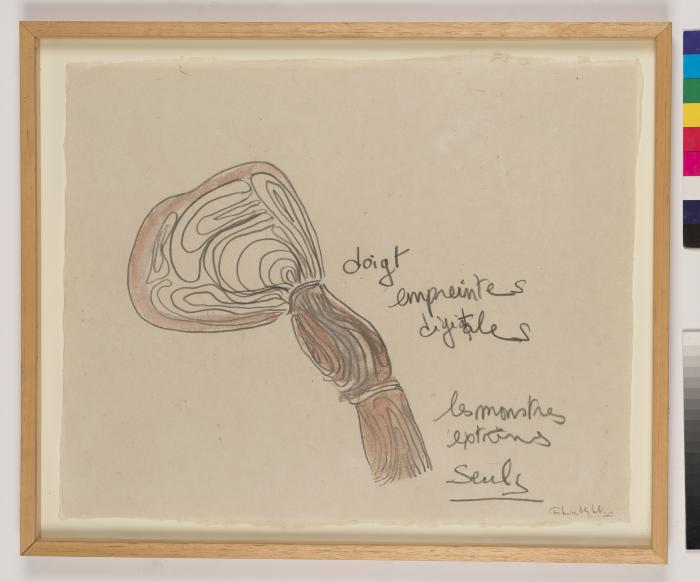 doigt
empreintes
digitales
les monstres
Seuls